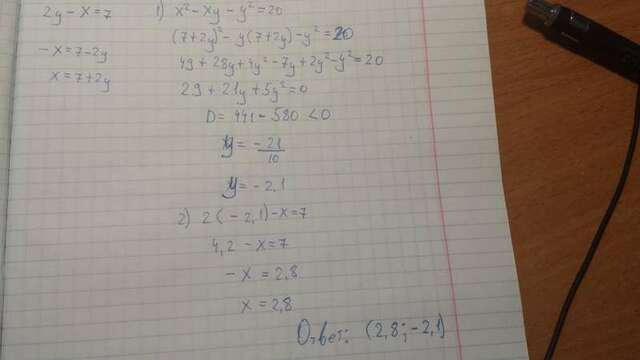 2y - x = 7
- x = 7 - 2y
x = 7 + 2y
1) x² - xy - y² = 20
(7+2y)² - y(7+2y) - y² = 20
49 + 28y + 4y² - 7y + 2y² - y² = 20
29 + 21y + 5y² = 0
D = 441 - 580 < 0
y = - 21/10
y = - 2,1
2) 2(-2,1) - x = 7
4,2 - x = 7
- x = 2,8
x = 2,8
Ответ: (2,8; -2,1)